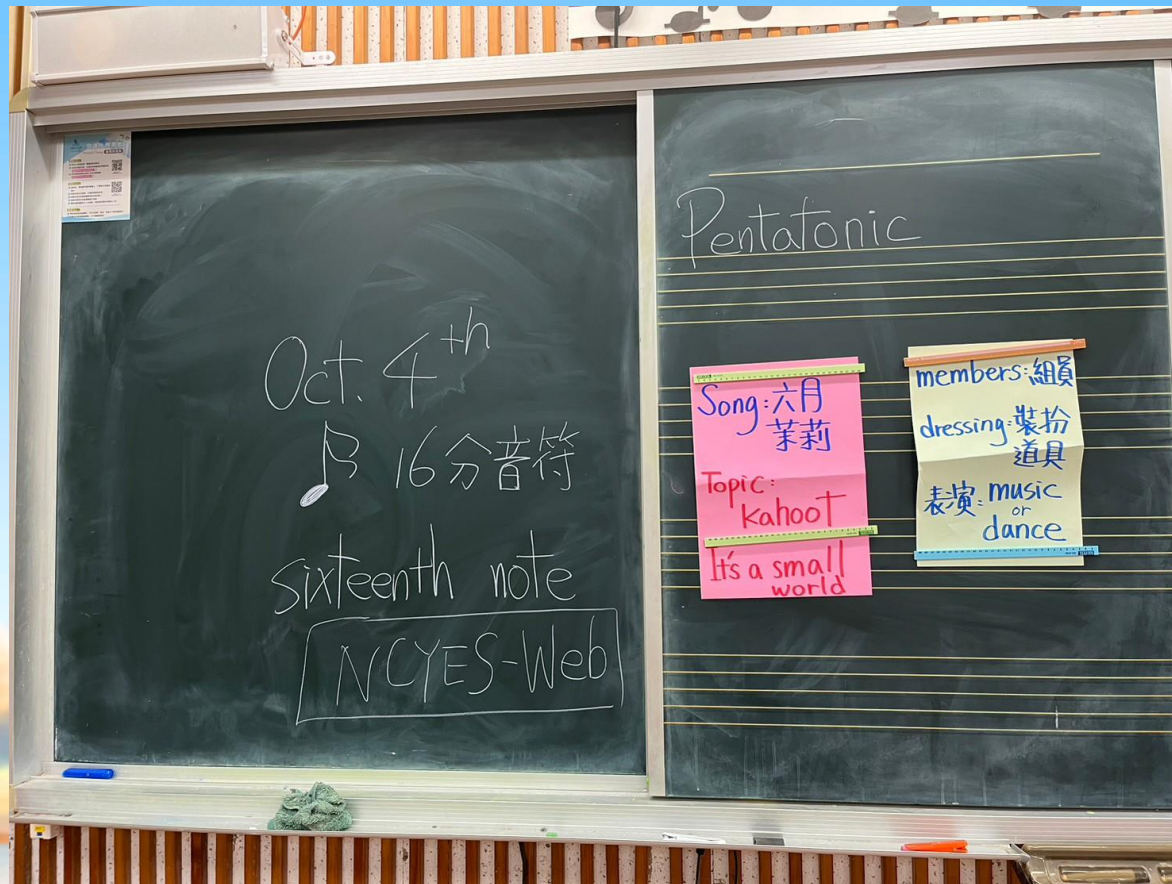 Oct. 4th
16分音符
sixteenth note
NCYES-Web
Pentatonic
Song:六月
茉莉
Topic:
kahoot
It's a small
world
members:組員
dressing:裝扮
道具
表演:music
or
dance